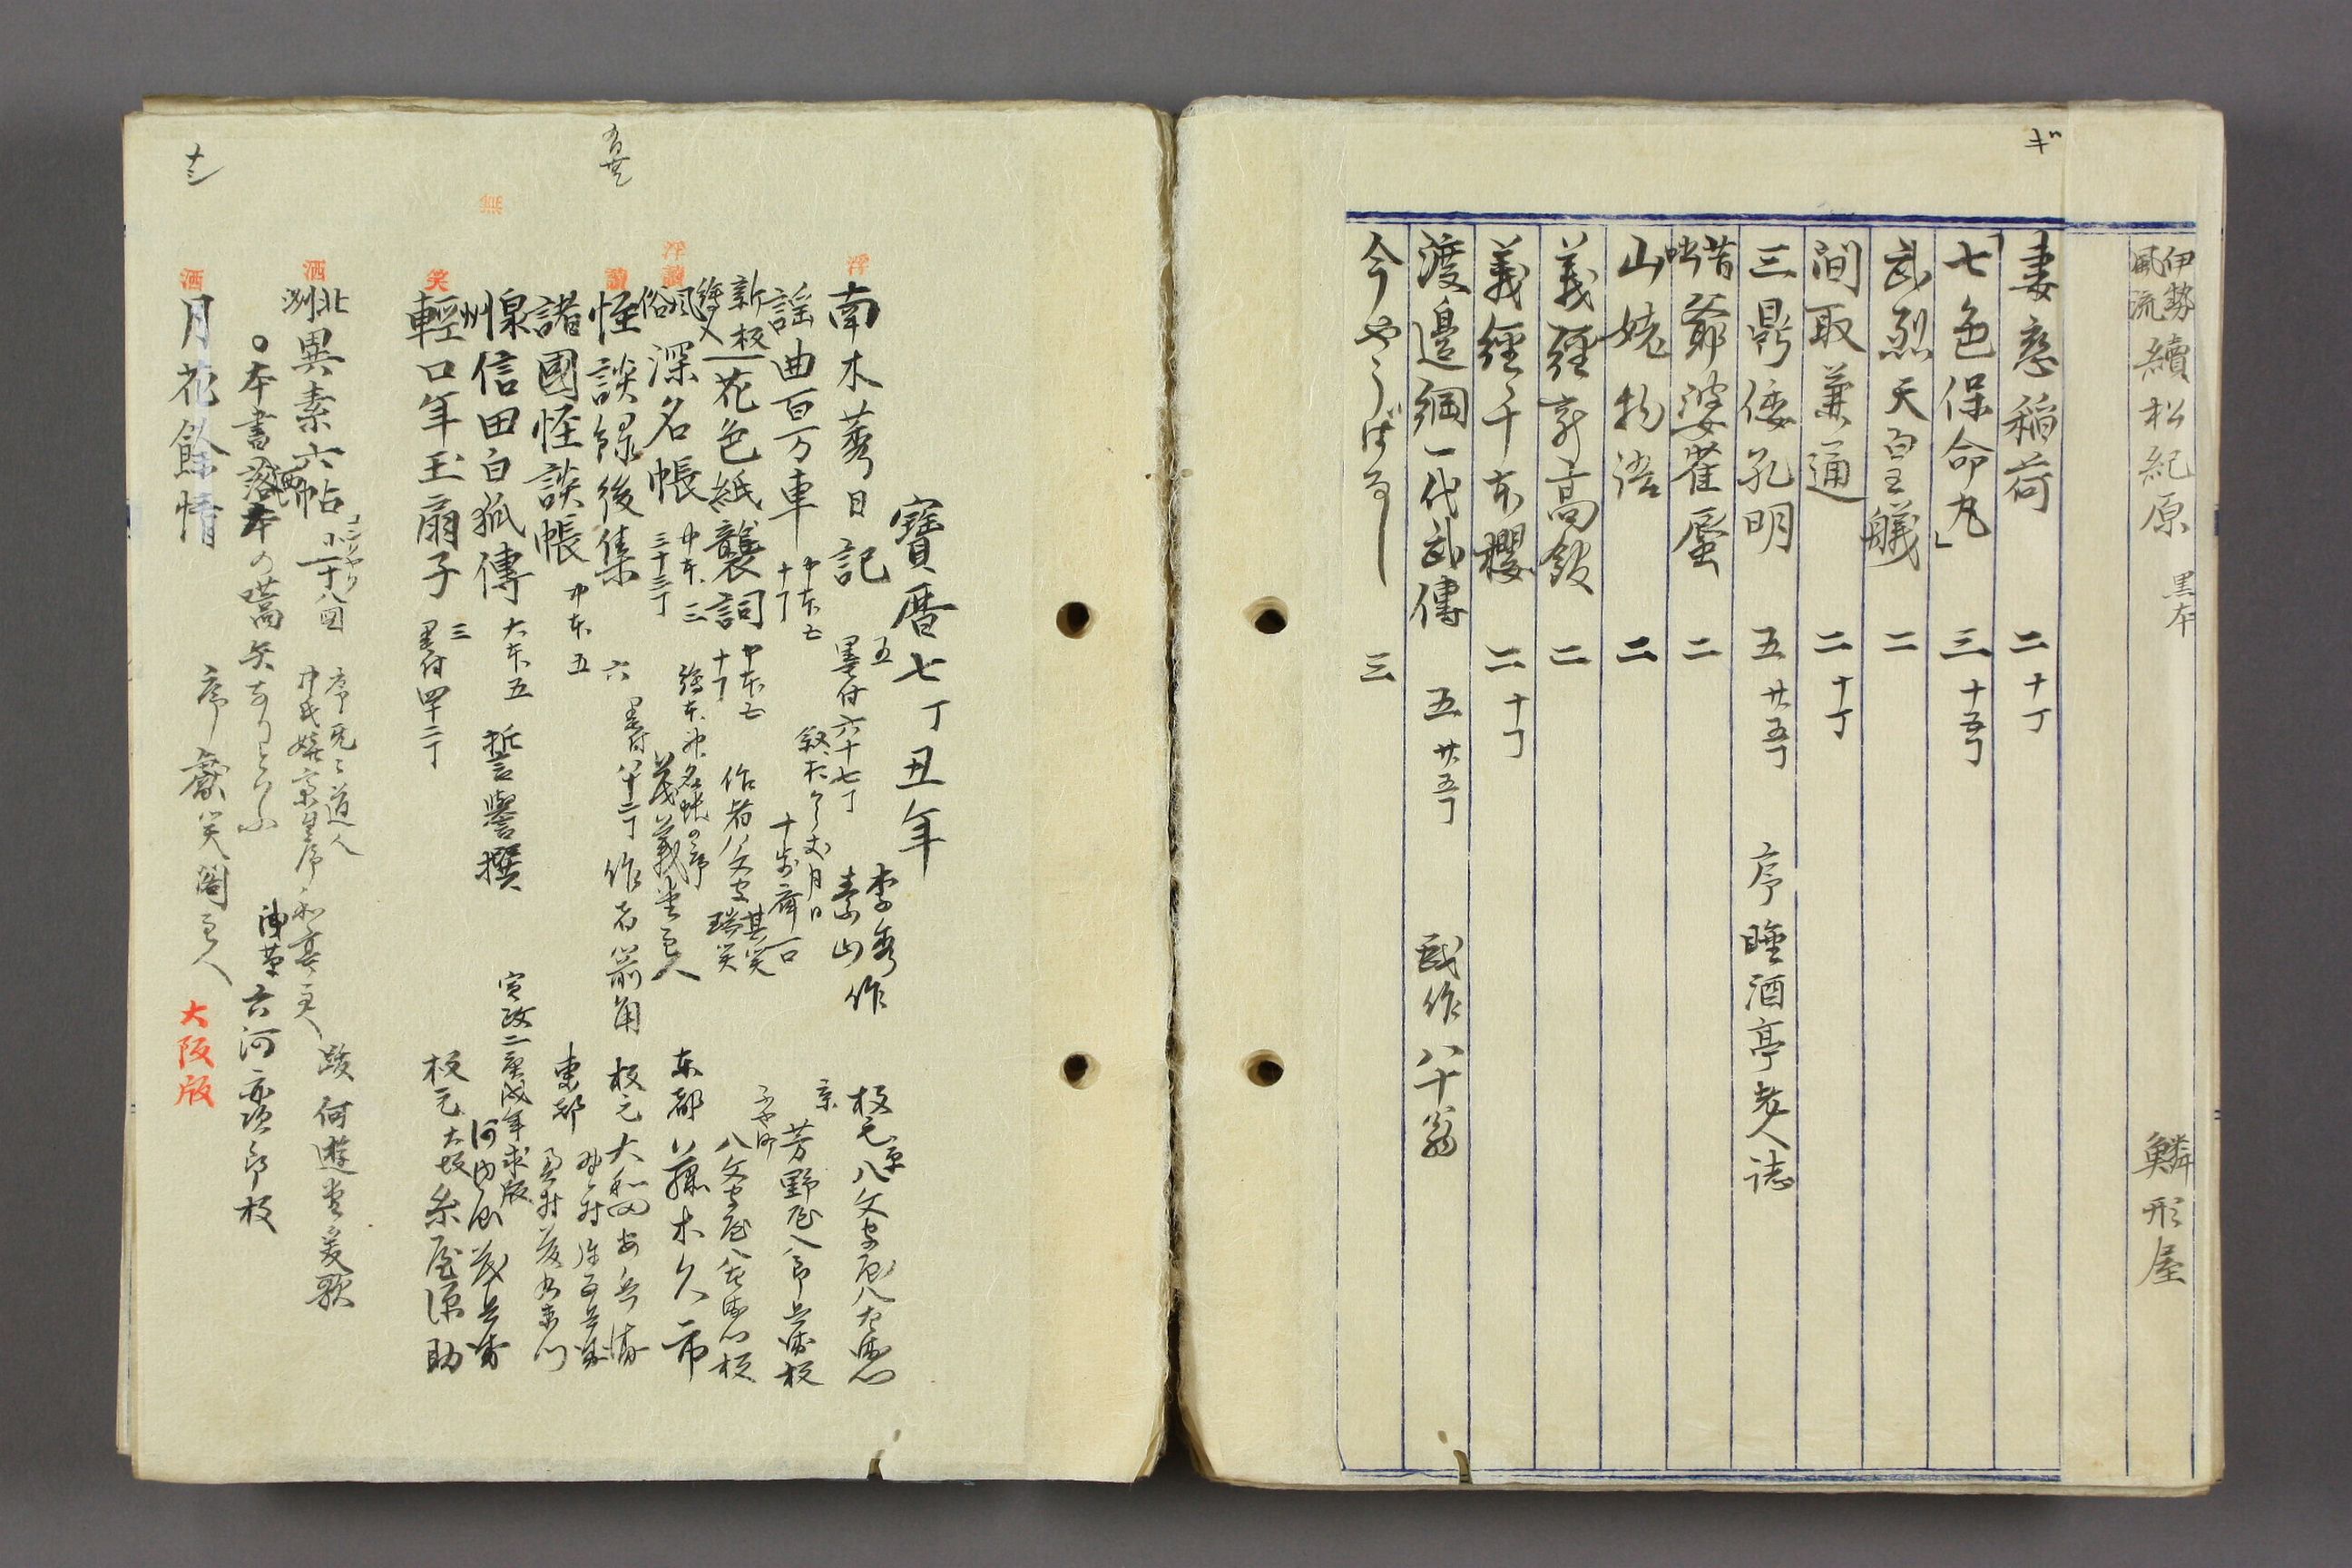 ギ
伊勢風流 續松紀原 黒本 鱗形屋
妻恋稲荷 二 十丁
「七色保命丸」 三 十五丁
武烈天皇艤 二
間取兼通 二 十丁
三鼎倭孔明 五 廿五丁 序 睡酒亭老人誌
昔咄 爺婆藿蜃 二
山姥物語 二
義經新高舘 二
義經千本櫻 二 十丁
渡邊綱一代武傳 五 廿五丁 戯作 八十翁
今やうばなし 三
寶暦七丁丑年
浮 南木莠日記 五 墨付六十七丁 李秀 素山 作 板元 京 八文字屋八左衛門
謡曲百万車 中本五 十丁 十方齋一口 京 芳野屋八郎兵衛板
新板繪入 花色紙襲詞 中本五 十丁 作者八文字 其笑 瑞笑 八文字屋八左衛門板
浮 讀 風俗 深名帳 中本 三 三十三丁 茂義堂主人 東都 藤木久市
讀 怪談録後集 六 墨付 作者 箭角 板元 大和田安兵衛
諸國怪談帳 中本 五 東都
無 泉州 信田白狐傳 大本五 誓譽撰 寛政二庚戌年求版 河内屋茂兵衛
笑 輕口年玉扇子 三 墨付四十二丁 板元 大坂 糸屋源助
洒 北洲 異素六帖 小 序 无々道人 中氏嬉斎皇序 和亭主人 跋 何遊堂美歌
○本書洒落本の嚆矢なりといふ 六河亦次郎板
洒 月花餘情 序 獻笑閣主人 大阪版